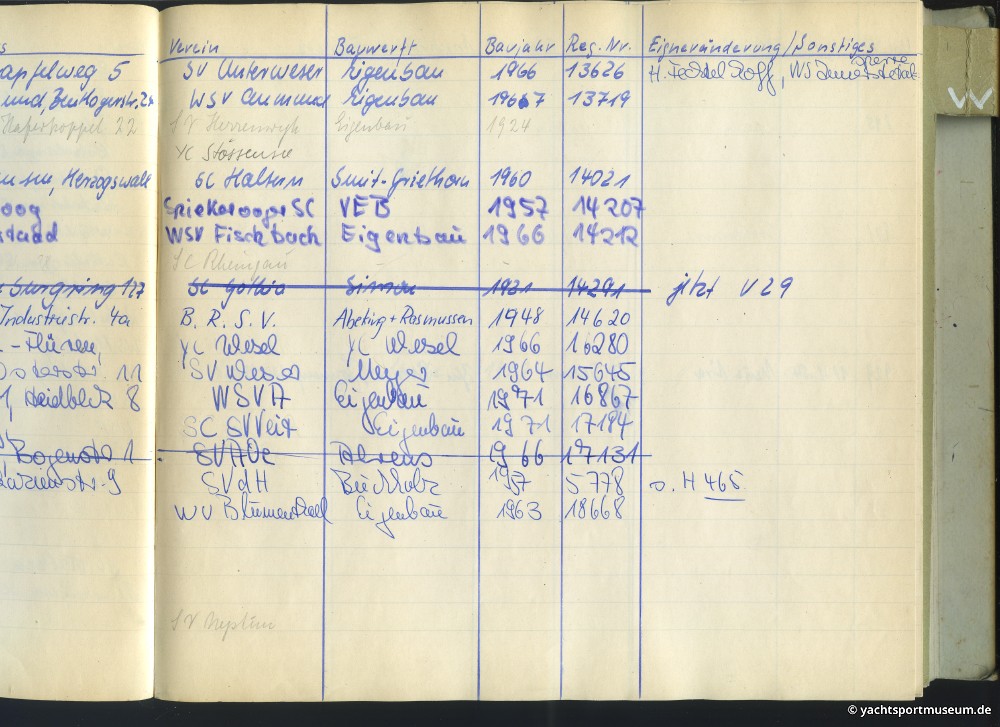 s Verein Bauwerft Baujahr Reg. Nr. Eigneränderung/Sonstiges
apfelweg 5 SV Unterweser Eigenbau 1966 13626 H. , WS
und, WSV Eigenbau 1967 13719
Haferkoppel 22 SV Herrenwyk Eigenbau 1924
YC Stössensee
Herzogswalk SC Haltern Smit-Giethorn 1960 14021
oog Spiekerooger SC VEB 1957 14207
stadd WSV Fischbach Eigenbau 1966 14212
SC Rheingau
Burgring 127 SC Gothia Simon 1931 14291 jetzt V 29
Industriestr. 4a B. R. S. V. Abeking + Rasmussen 1948 14620
YC Wesel YC Wesel 1966 16280
11 SV Weser Meyer 1964 15645
Heidblick 8 WSVA Eigenbau 1971 16867
SC Eigenbau 1971 17184
1 Ahrens 1966 17131
9 SVdH Buchholz 5778 s. H 465
WV Blumenthal Eigenbau 1963 18668
SV Neptun
© yachtsportmuseum.de